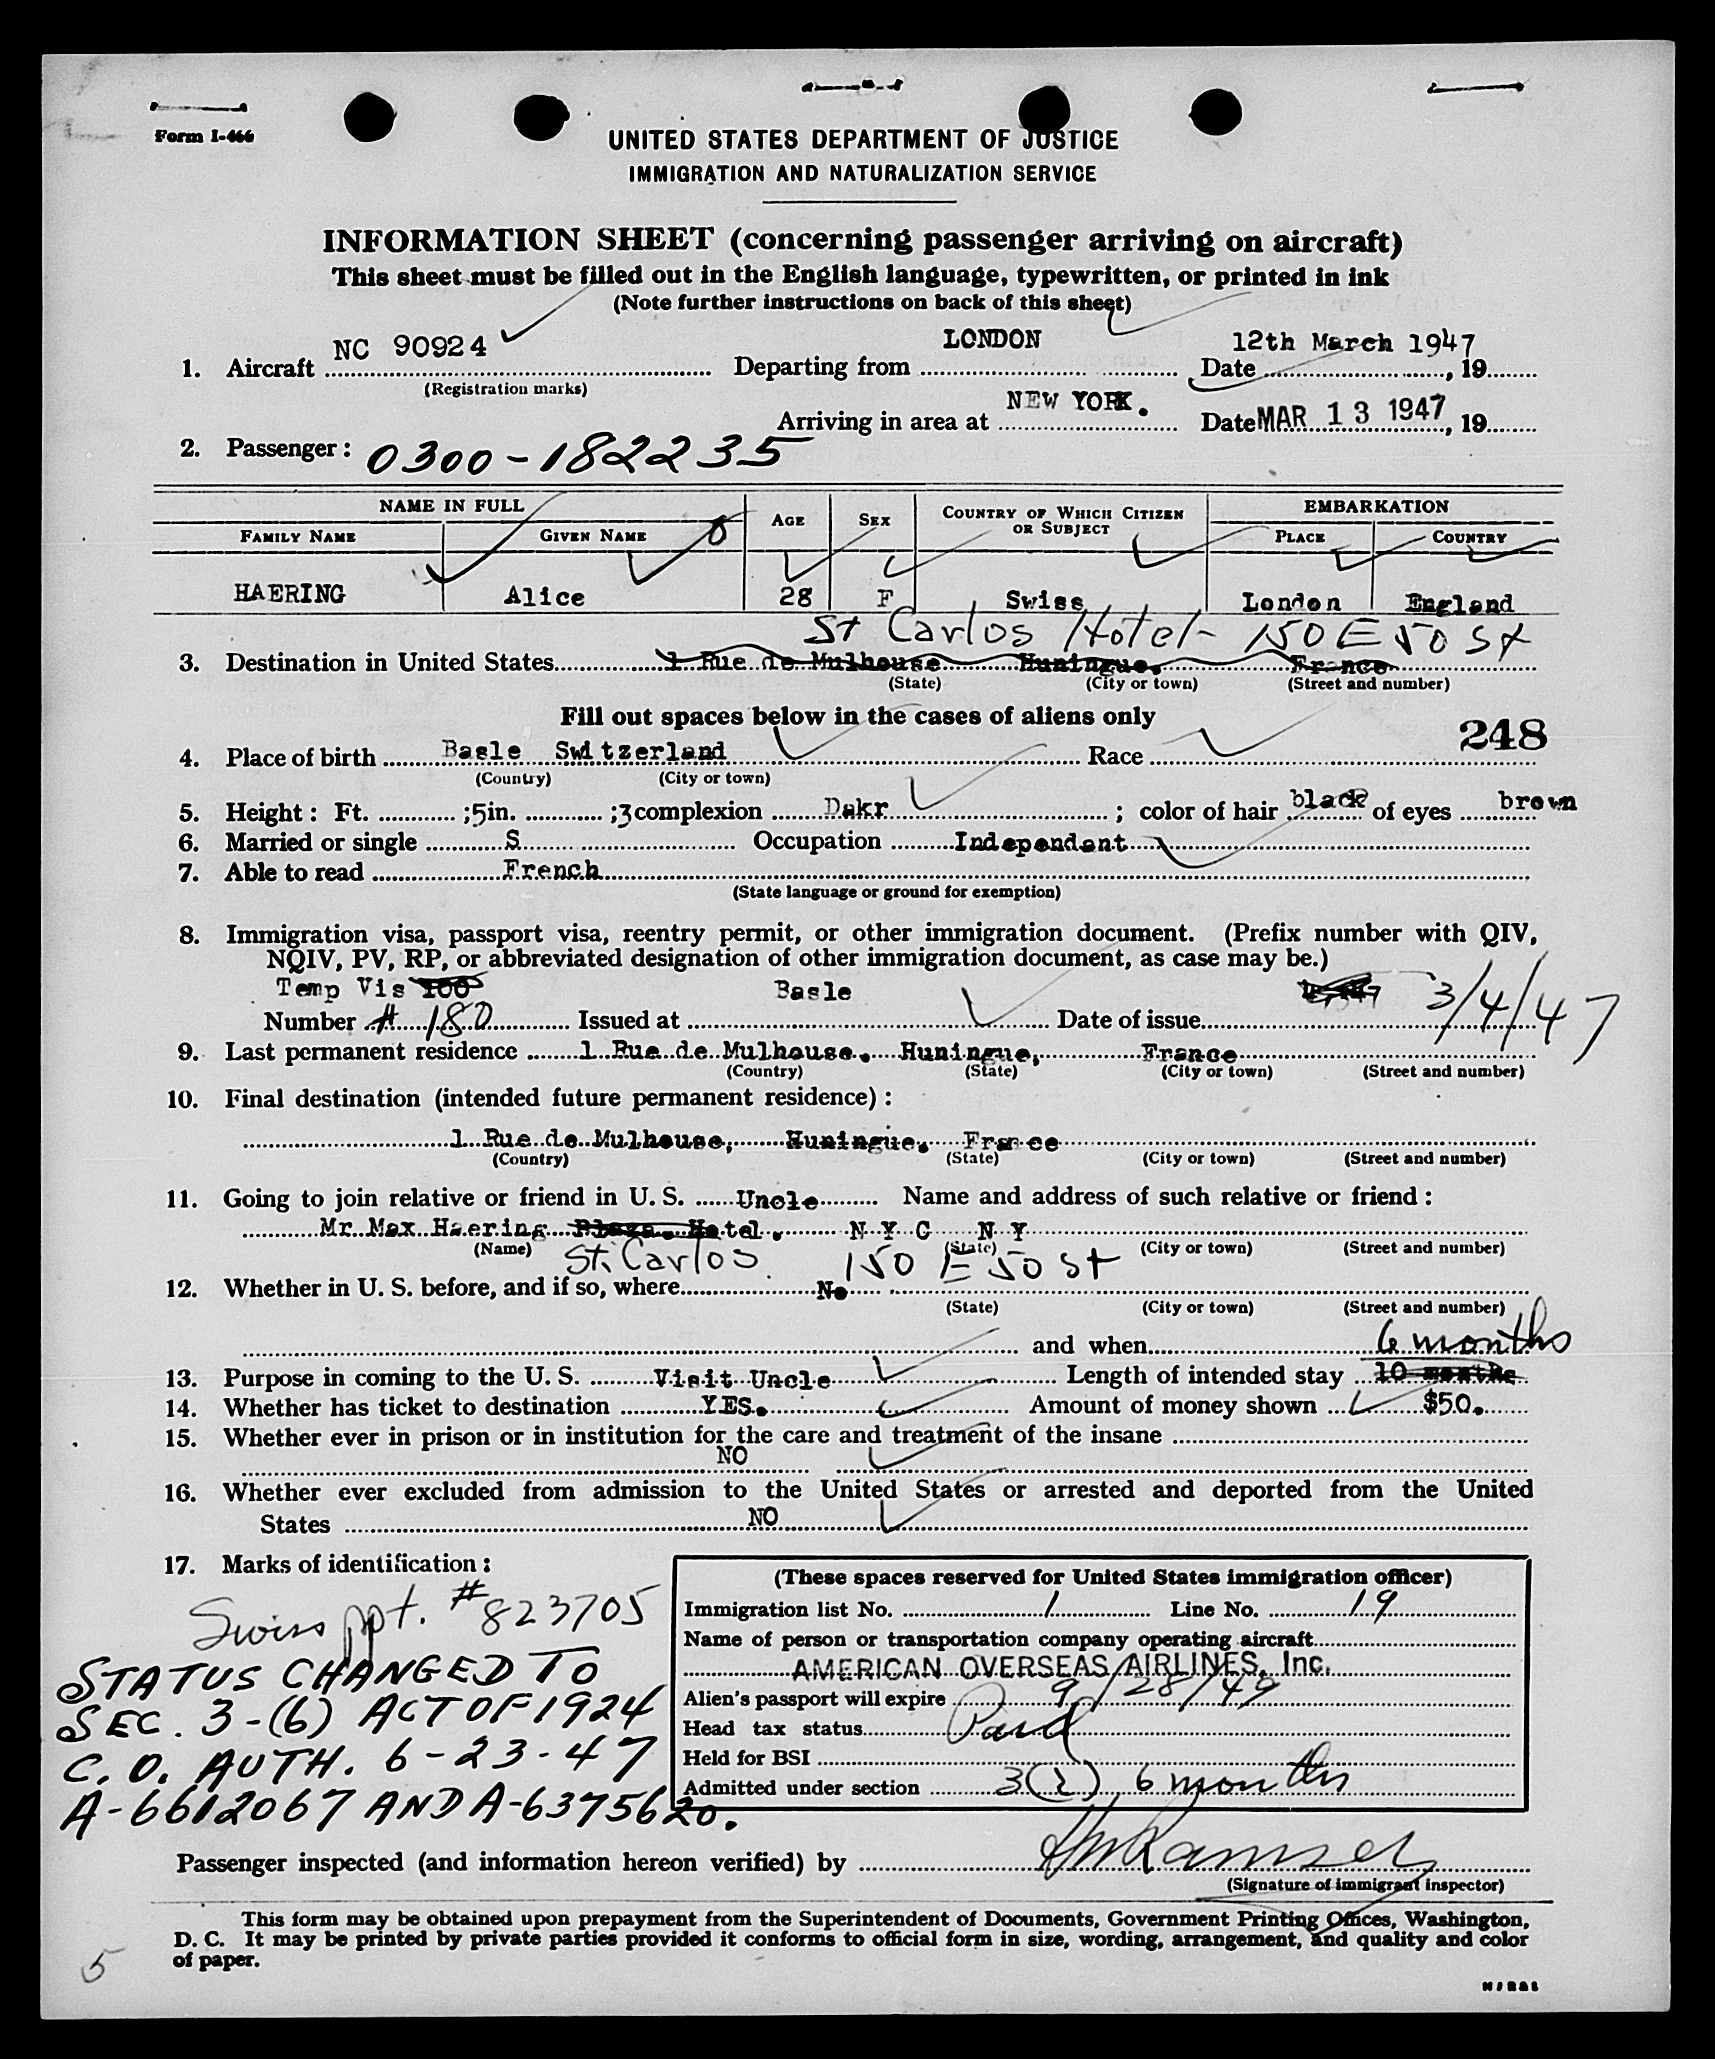 Form I-466
UNITED STATES DEPARTMENT OF JUSTICE
IMMIGRATION AND NATURALIZATION SERVICE
INFORMATION SHEET (concerning passenger arriving on aircraft)
This sheet must be filled out in the English language, typewritten, or printed in ink
(Note further instructions on back of this sheet)
1. Aircraft NC 90924 Departing from LONDON Date 12th March 1947, 19
(Registration marks)
Arriving in area at NEW YORK. Date MAR 13 1947, 19
2. Passenger: 0300-182235
NAME IN FULL EMBARKATION
FAMILY NAME GIVEN NAME AGE SEX COUNTRY OF WHICH CITIZEN OR SUBJECT PLACE COUNTRY
HAERING Alice 28 F Swiss London England
St Carlos Hotel - 150 E 50 St
3. Destination in United States 1 Rue de Mulhouse Huningue, France
(State) (City or town) (Street and number)
Fill out spaces below in the cases of aliens only
248
4. Place of birth Basle Switzerland Race
(Country) (City or town)
5. Height: Ft. ;5in. ;3complexion Dakr ; color of hair black of eyes brown
6. Married or single S Occupation Independant
7. Able to read French
(State language or ground for exemption)
8. Immigration visa, passport visa, reentry permit, or other immigration document. (Prefix number with QIV,
NQIV, PV, RP, or abbreviated designation of other immigration document, as case may be.)
Temp Vis 100 Basle 3/4/47
Number # 180 Issued at Date of issue
9. Last permanent residence 1 Rue de Mulhouse, Huningue, France
(Country) (State) (City or town) (Street and number)
10. Final destination (intended future permanent residence):
1 Rue de Mulhouse, Huningue, France
(Country) (State) (City or town) (Street and number)
11. Going to join relative or friend in U. S. Uncle Name and address of such relative or friend:
Mr. Max Haering Plaza. Hotel. N Y C N Y
(Name) (State) (City or town) (Street and number)
St. Carlos 150 E 50 St
12. Whether in U. S. before, and if so, where No
(State) (City or town) (Street and number)
and when 6 months
13. Purpose in coming to the U. S. Visit Uncle Length of intended stay 10 months
14. Whether has ticket to destination YES. Amount of money shown $50.
15. Whether ever in prison or in institution for the care and treatment of the insane
NO
16. Whether ever excluded from admission to the United States or arrested and deported from the United
States NO
17. Marks of identification:
Swiss ppt. #823705
STATUS CHANGED TO
SEC. 3-(6) ACT OF 1924
C.O. AUTH. 6-23-47
A-6612067 AND A-6375620.
(These spaces reserved for United States immigration officer)
Immigration list No. 1 Line No. 19
Name of person or transportation company operating aircraft
AMERICAN OVERSEAS AIRLINES, Inc.
Alien's passport will expire 9/28/49
Head tax status Paid
Held for BSI
Admitted under section 3(2) 6 months
Passenger inspected (and information hereon verified) by
(Signature of immigrant inspector)
This form may be obtained upon prepayment from the Superintendent of Documents, Government Printing Offices, Washington,
D. C. It may be printed by private parties provided it conforms to official form in size, wording, arrangement, and quality and color
of paper.
5